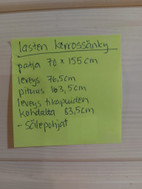 lasten kerrossänky
patja 70 x 155 cm
leveys 76,5cm
pituus 163,5cm
leveys tikapuiden
kohdalta 83,5cm
- Sälepohjat